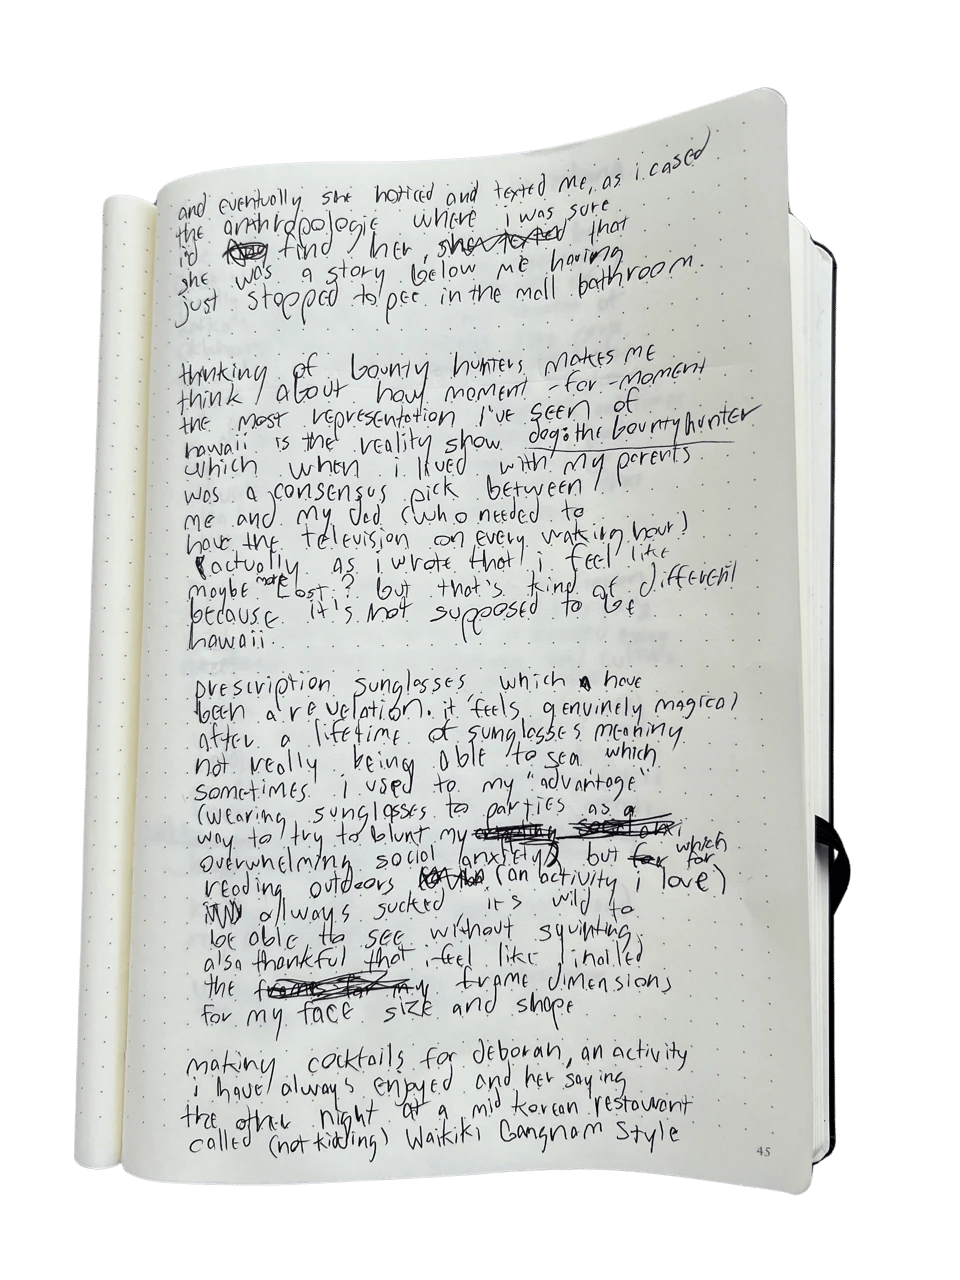 and eventually she noticed and texted me, as i cased
the anthropologie where i was sure
i'd find her, she texted that
she was a story below me having
just stopped to pee in the mall bathroom.
thinking of bounty hunters makes me
think about how moment-for-moment
the most representation i've seen of
hawaii is the reality show dog: the bounty hunter
which when i lived with my parents
was a consensus pick between
me and my dad (who needed to
have the television on every waking hour)
(actually as i wrote that i feel like
maybe more Lost? but that's kind of different
because it's not supposed to be
hawaii.
prescription sunglasses which have
been a revelation. it feels genuinely magical
after a lifetime of sunglasses meaning
not really being able to sea which
sometimes i used to my "advantage"
(wearing sunglasses to parties as a
way to try to blunt my
overwhelming social anxiety) but for which
reading outdoors (an activity i love) for
always sucked it's wild to
be able to see without squinting.
also thankful that i feel like i nailed
the frames for my frame dimensions
for my face size and shape
making cocktails for deborah, an activity
i have always enjoyed and her saying
the other night at a mid korean restaurant
called (not kidding) Waikiki Gangnam Style
45